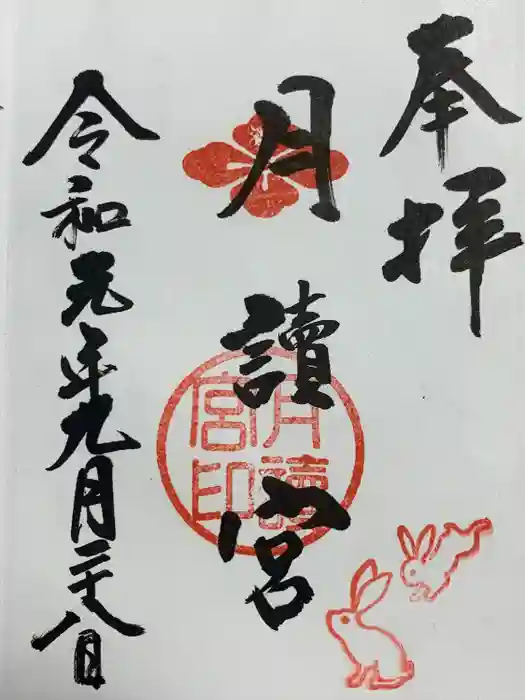 奉拝
月讀宮
月讀宮印
令和元年九月二十八日